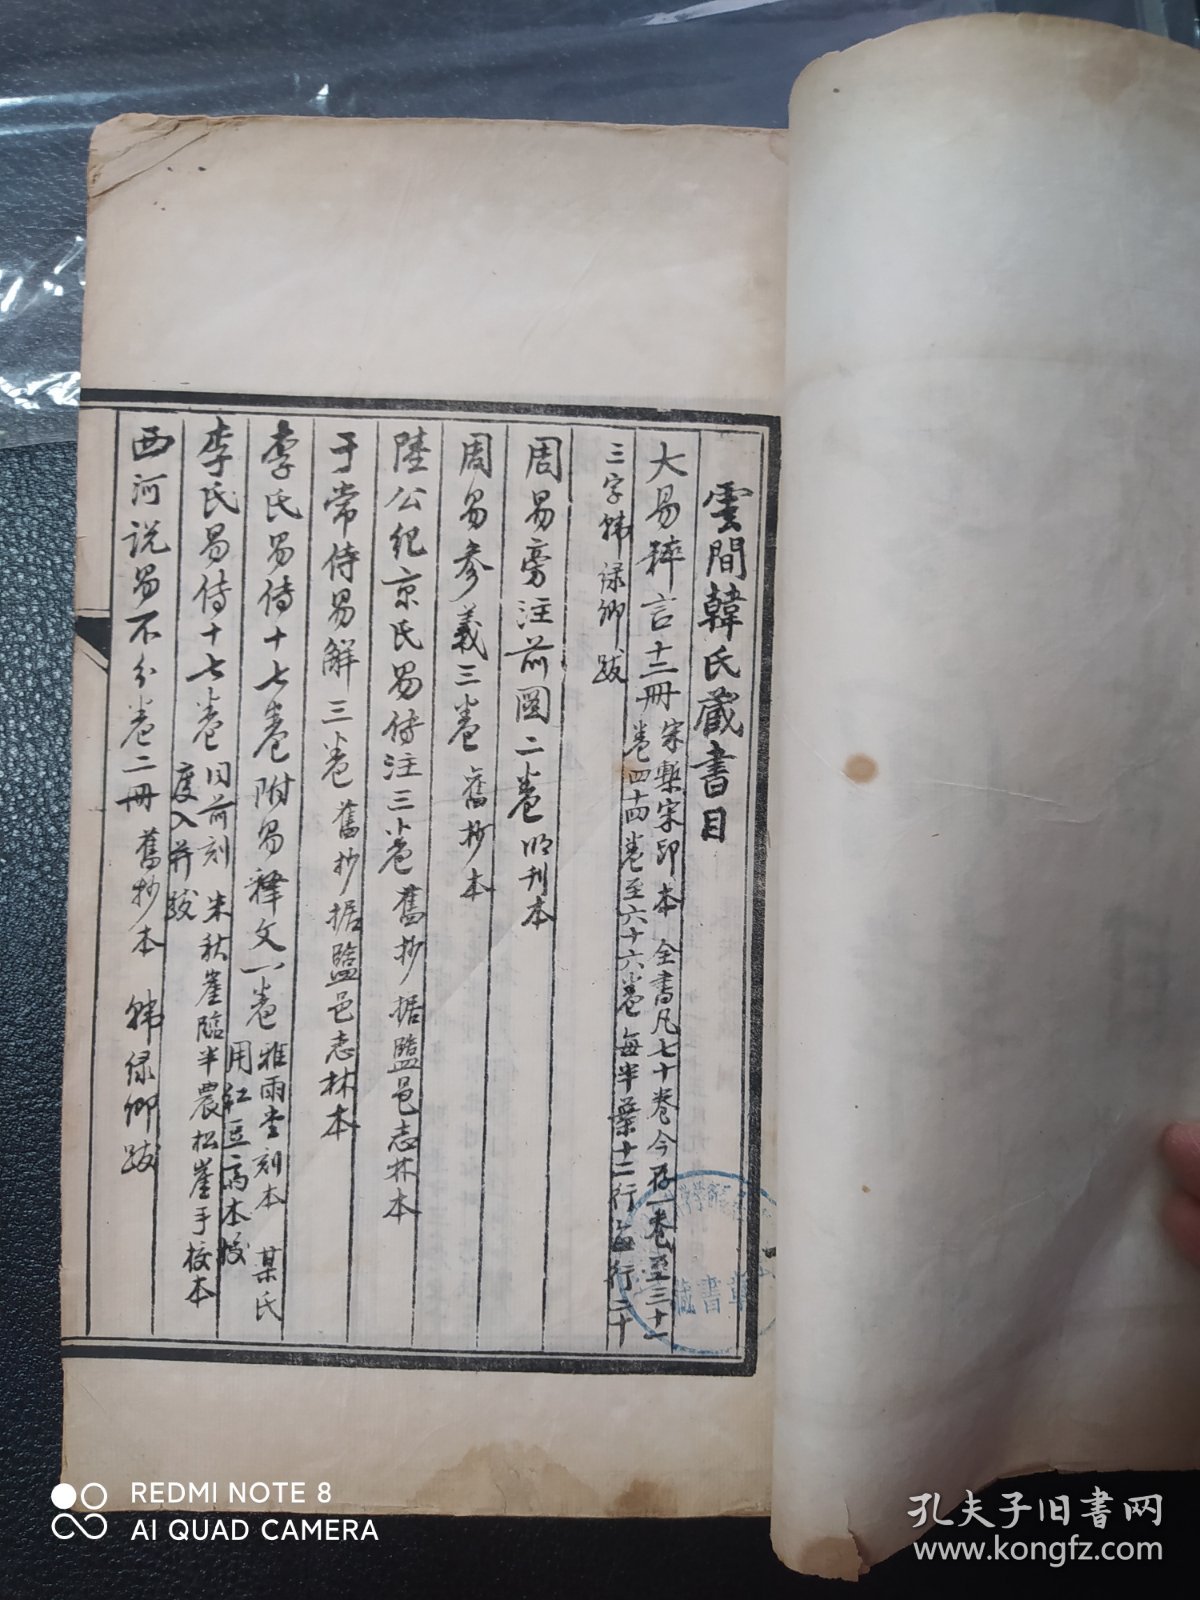 雲間韓氏藏書目
大易粹言十二冊 宋槧宋印本 全書凡七十卷今存一卷至三十一
卷四十四卷至六十六卷每半葉十二行每行二十
三字韩渌卿跋
周易旁注前圖二卷 明刊本
周易參義三卷 舊抄本
陸公紀京氏易傳注三卷 舊抄據鹽邑志林本
于常侍易解三卷 舊抄据鹽邑志林本
李氏易傳十七卷附易釋文一卷 雅雨堂刻本 某氏
用紅豆齋本校
李氏易傳十七卷 同前刻 朱秋崖臨半農松崖手校本
度入並跋
西河说易不分卷二冊 舊抄本 韩绿卿跋
藏書章
REDMI NOTE 8
AI QUAD CAMERA
孔夫子旧书网
www.kongfz.com